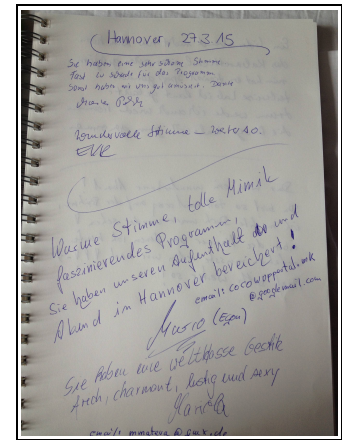 Hannover, 27.3.15
Sie haben eine sehr schöne Stimme
Fast zu schade für das Programm
Sonst haben wir uns gut amüsiert. Danke
Wundervolle Stimme – weiter so.
Warme Stimme, tolle Mimik
faszinierendes Programm,
Sie haben unseren Aufenthalt und
Abend in Hannover bereichert!
email:
@googlemail.com
Mario
Sie haben eine weltklasse Gestik
frech, charmant, lustig und sexy
email: